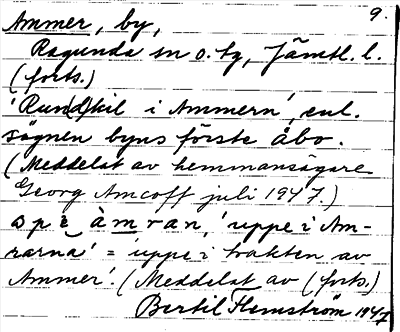 Ammer, by, 9.
Ragunda sn o. tg, Jämtl. l.
(forts.)
'Run(d)kil i Ammern', enl.
sägnen byns förste åbo.
(Meddelat av hemmansägare
Georg Amcoff juli 1947.)
àmran, 'uppe i Am-
rarna' = 'uppe i trakten av
Ammer'. (Meddelat av (forts.)
Bertil Flemström 1947